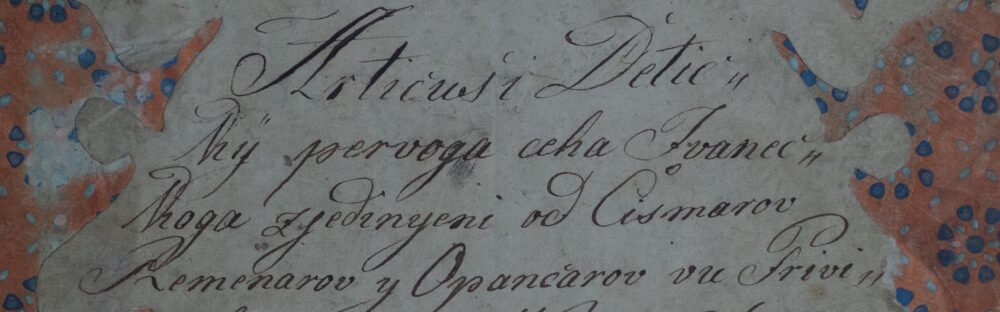 Articusi Detič„
kÿ pervoga ceha Ivaneč„
koga zjedinyeni od Čismarov
Remenarov y Opančarov vu Privi„